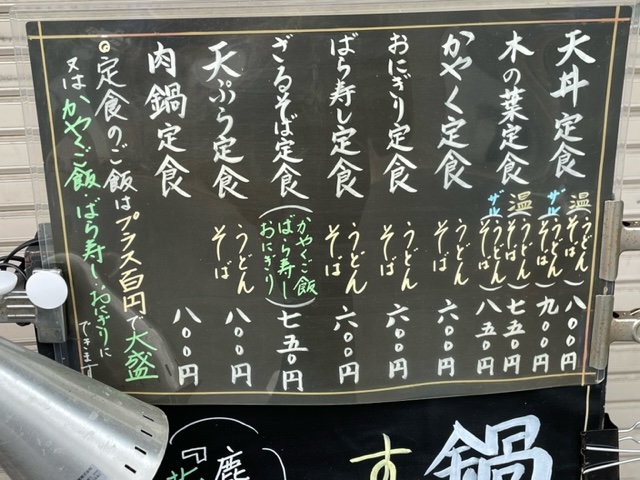 天丼定食 温(うどん そば) 八〇〇円
ザル(うどん そば) 九〇〇円
木の葉定食 温(うどん そば) 七五〇円
ザル(うどん そば) 八五〇円
かやく定食 うどん そば 六〇〇円
おにぎり定食 うどん そば 六〇〇円
ばら寿し定食 うどん そば 六〇〇円
ざるそば定食(かやくご飯 ばら寿し おにぎり) 七五〇円
天ぷら定食 うどん そば 八〇〇円
肉鍋定食 八〇〇円
◎定食のご飯はプラス百円で大盛
又はかやくご飯・ばら寿し・おにぎりに
できます
鍋
す
鹿